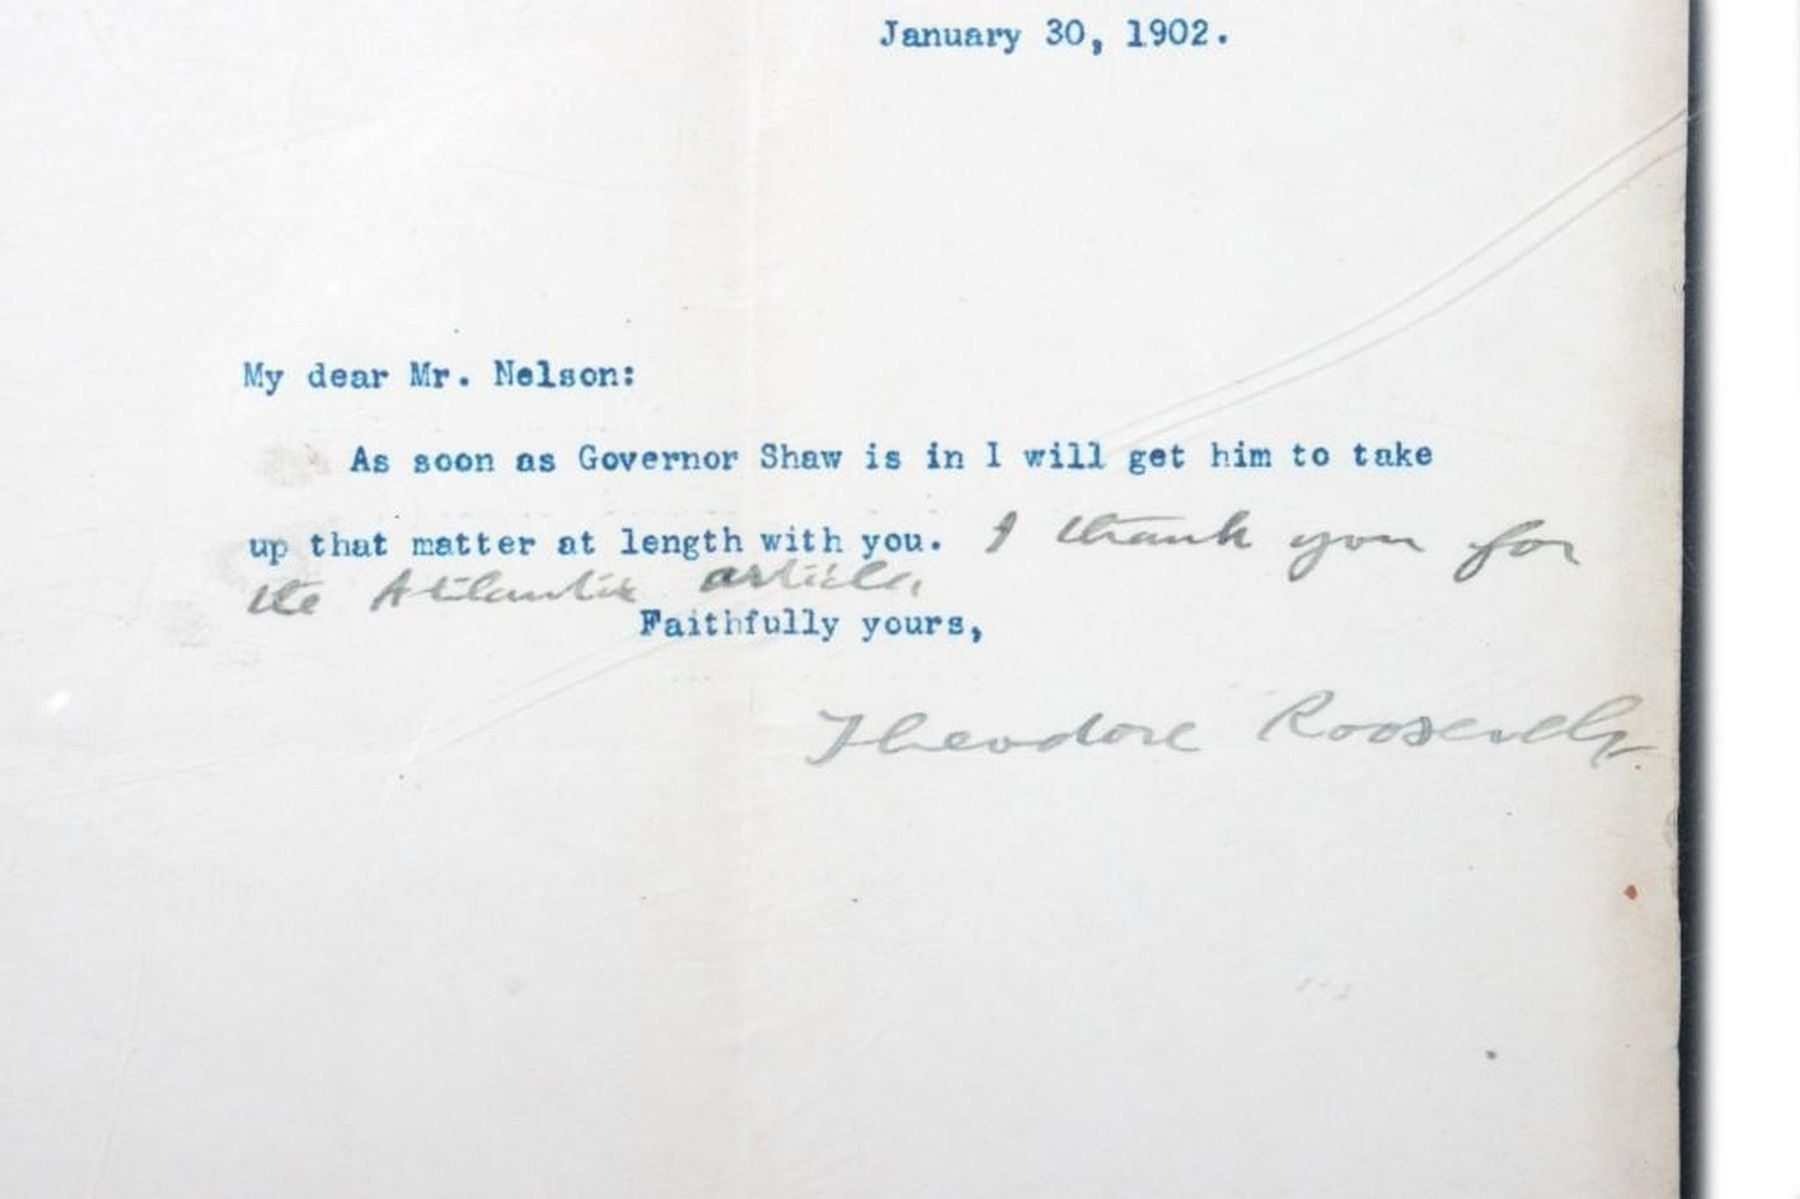 January 30, 1902.
My dear Mr. Nelson:
As soon as Governor Shaw is in I will get him to take
up that matter at length with you. I thank you for
the Atlantic article.
Faithfully yours,
Theodore Roosevelt